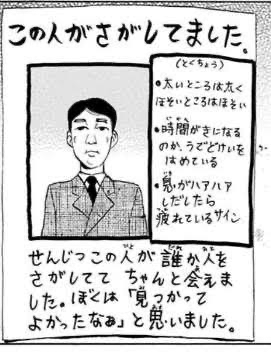 この人がさがしてました。
(とくちょう)
•太いところは太く
ほそいところはほそい
•時間がきになる
のか、うでどけいを
はめている
•息がハアハア
しだしたら
疲れているサイン
せんじつこの人が誰か人を
さがしてて ちゃんと会えま
した。ぼくは「見つかって
よかったなぁ」と思いました。